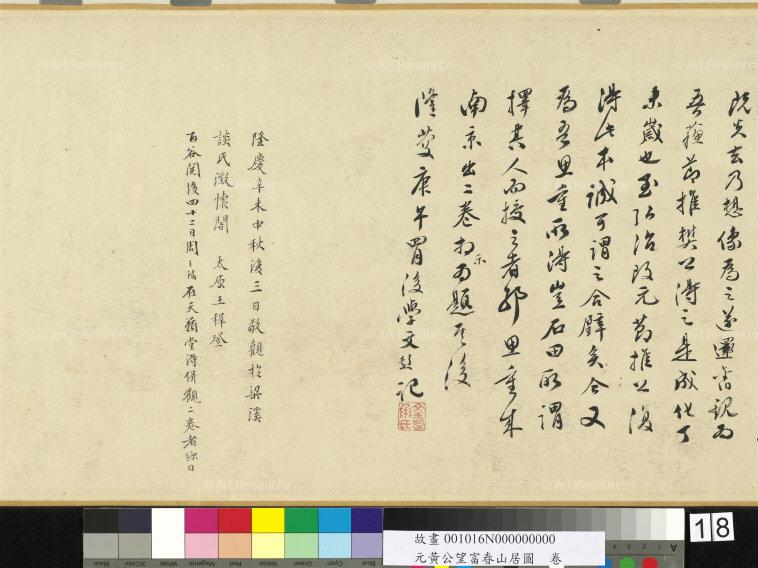 既失去乃想像為之遂還舊觀為
吾蘇節推樊公得之是成化丁
未歲也至弘治改元節推公復
得此本誠可謂之合璧矣今又
為吾思重所得豈石田所謂
擇其人而授之者耶思重來
南京出二卷相示為題其後
隆慶庚午四月後學文彭記
文壽承氏
隆慶辛未中秋後三日敬觀於梁溪
談氏澂懷閣 太原王穉登
百谷閱後四十二日周天球在天籟堂得併觀二卷者弥日
Art Resource
Black
3/Color
White
Magenta
Red
Yellow
Green
Cyan
Blue
故畫 001016N000000000
元黃公望富春山居圖 卷
A
18